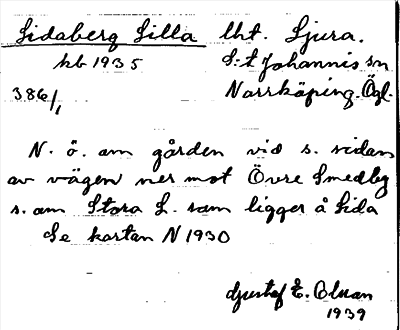 Sidaberg Lilla lht. Ljura.
kb 1935 S:t Johannis sn
386/1 Norrköping. Ögl.
N. ö. om gården vid s. sidan
av vägen ner mot Övre Smedbg
s. om Stora S. som ligger å Sida
Se kartan N 1930
Gustaf E. Olsson
1939